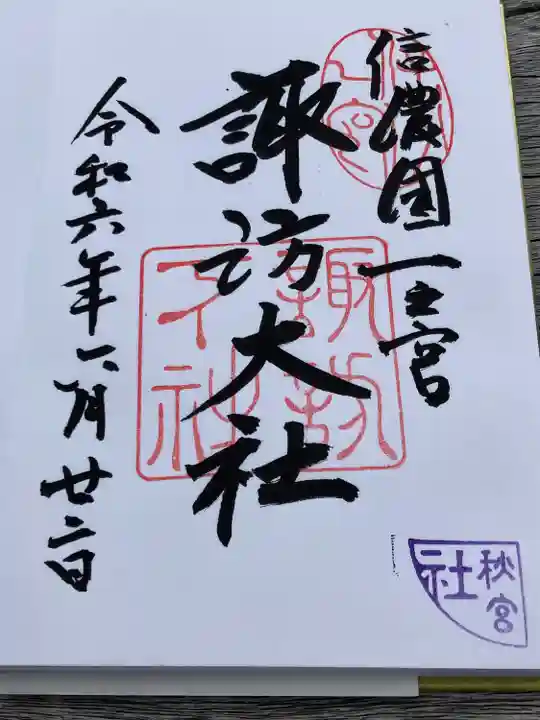 信濃国一之宮
諏訪大社
諏訪
下社
令和六年一月廿二日
秋宮
社